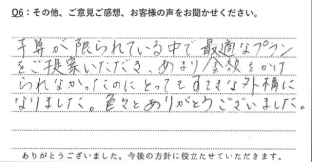 Q6：その他、ご意見ご感想、お客様の声をお聞かせください。
予算が限られている中で最適なプラン
をご提案いただき、あまり金額をかけ
られなかったのにとってもすてきな外構に
なりました。色々とありがとうございました。
ありがとうございました。今後の方針に役立たせていただきます。